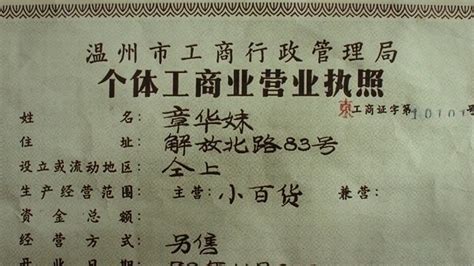 温州市工商行政管理局
个体工商业营业执照
东工商证字第10101号
姓名：章华妹
住址：解放北路83号
设立或流动地区：仝上
生产经营范围：主营：小百货 兼营：
资金总额：
经营方式：另售
开业日期：